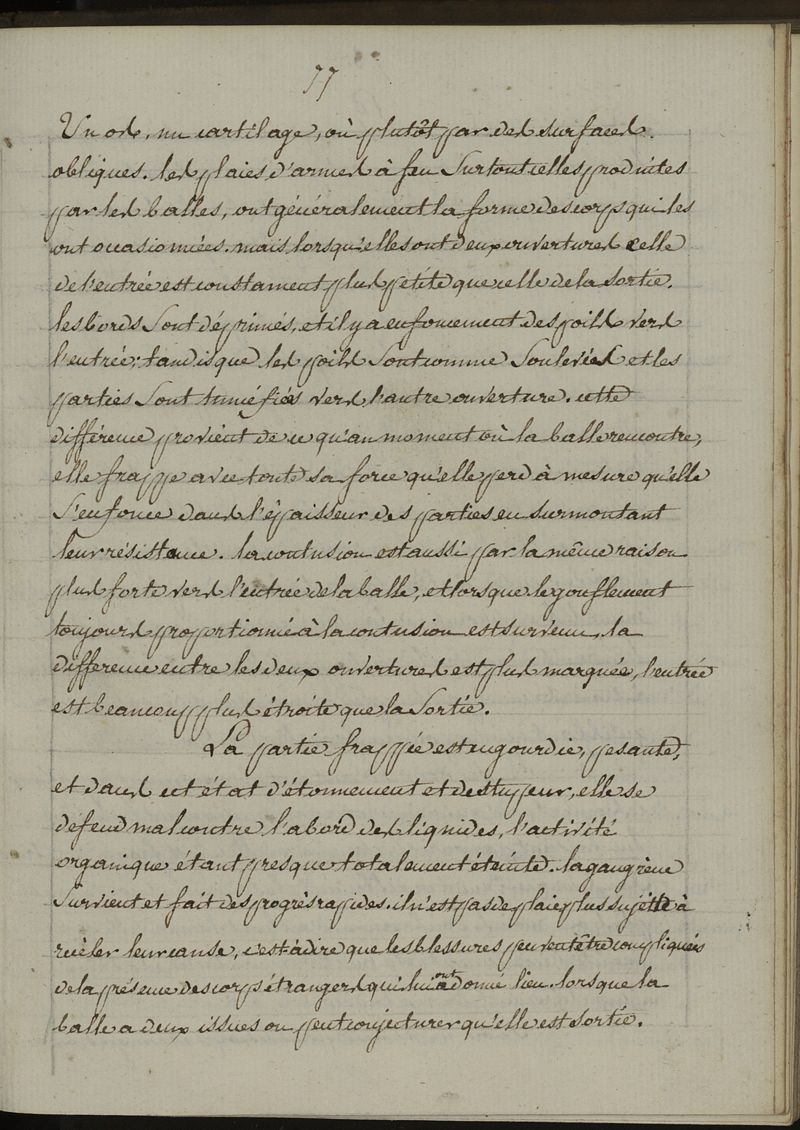 77
Un os, un cartilage, où plutôt par des surfaces.
obliques. les plaies d'armes à feu Surtout celles produites
par les balles, ont généralement la forme des corps qui les
ont occasionnées. mais lorsqu'elles ont deux ouvertures celle
de l'entrée est constament plus petite que celle de la sortie.
les bords Sont déprimés, et il y a enfoncement des poils vers
l'entrée; tandis que les poils Sont comme Soulevées et les
parties Sont tuméfiées vers l'autre ouverture. cette
différence provient de ce qu'au moment où la balle rencontre,
elle frappe avec toute sa force qu'elle perd à mesure qu'elle
S'enfonce dans l'épaisseur des parties en surmontant
leur résistance. la contusion est aussi par la même raison
plus forte vers l'entrée de la balle, et lorsque le gonflement
toujours proportionné à la contusion est survenu, la
difference entre les deux ouvertures est plus marquée, l'entrée
est beaucoup plus étroite que la Sortie.
La partie frappée est engourdie, pesante,
et dans cet état d'étonnement et de stupeur, elle se
defend mal contre l'abord des liquides, l'activité
organique étant presque totalement éteinte. la gangrène
Survient et fait des progrès rapides. il n'est pas de plaie plus sujette à
recéler leur cause, c'est à dire que les blessures peuvent être compliquées
de la présence des corps étrangers qui lui ont donné lieu. lorsque la
balle a deux issues on peut conjecturer qu'elle est Sortie.